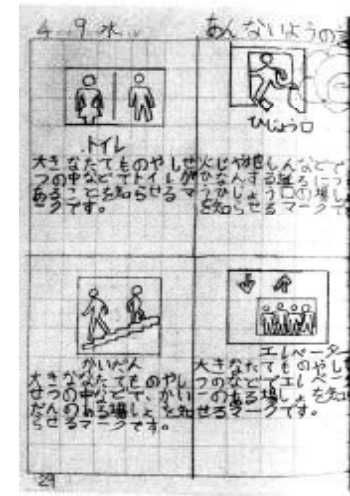 4 9 水
あんないようの
トイレ
大きなたてものやしせ
つの中などでトイレが
あることを知らせるマ
ークです。
ひじょう口
火じや地しんなどで
ひなんする
うひじょう口の場し
を知らせるマークで
かいだん
大きなたてものやし
せつの中などで、かい
だんのある場しょを知
らせるマークです。
エレベーター
大きなたてものやし
つのなどでエレベー
ーのある場しょを知
せるマークです。
29